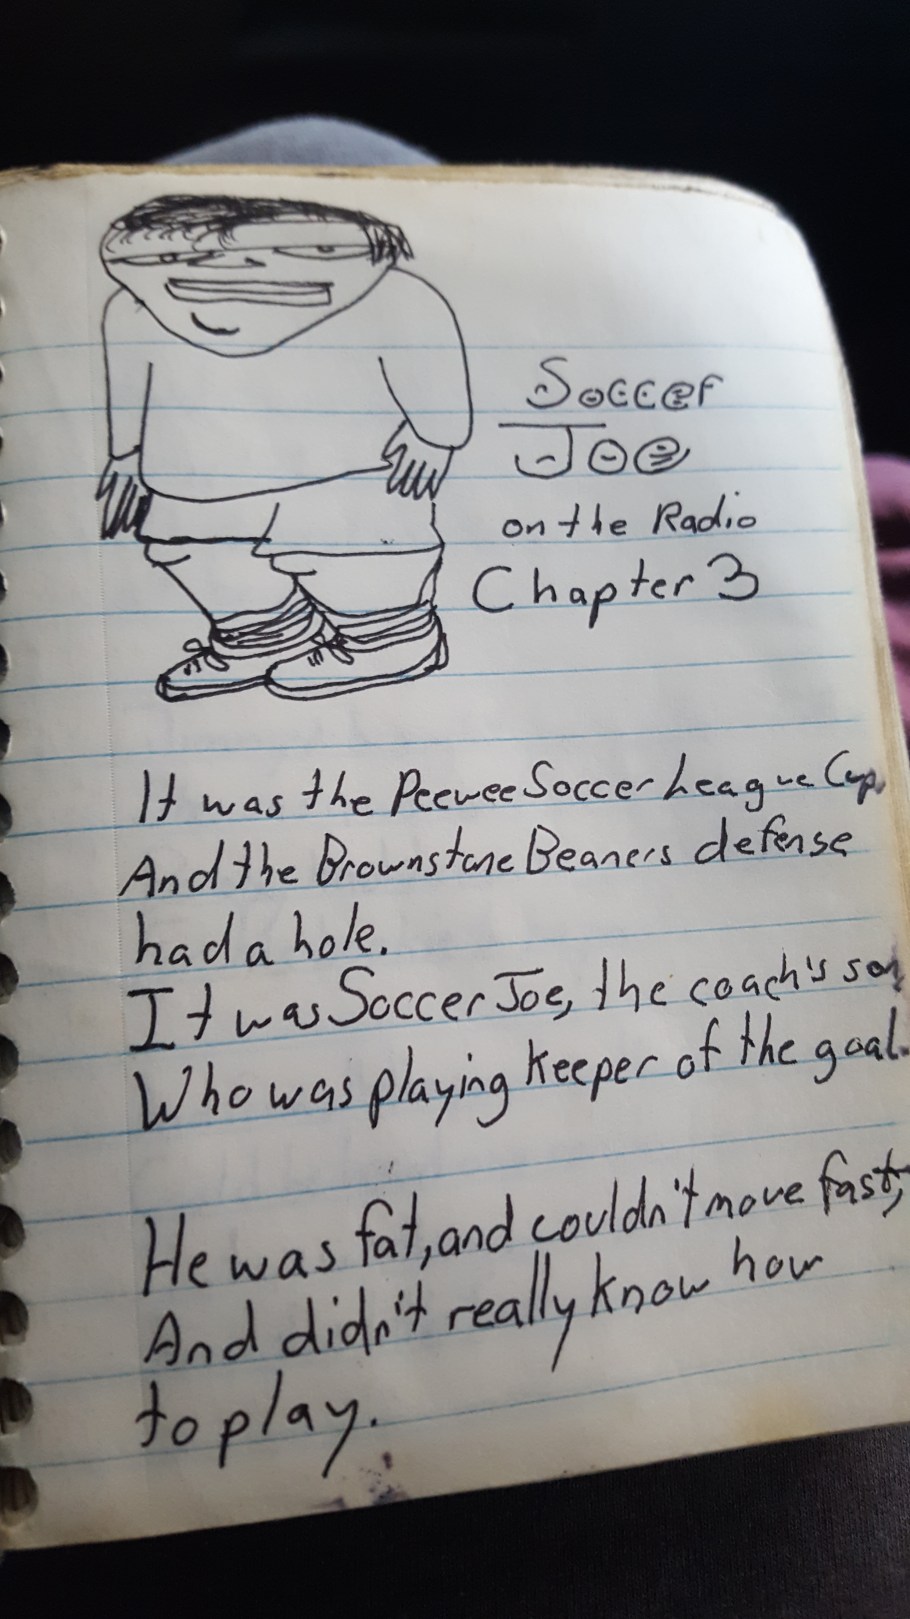 Soccer
Joe
on the Radio
Chapter 3
It was the Peewee Soccer League Cup,
And the Brownstone Beaners defense
had a hole.
It was Soccer Joe, the coach's son,
Who was playing keeper of the goal.
He was fat, and couldn't move fast,
And didn't really know how
to play.